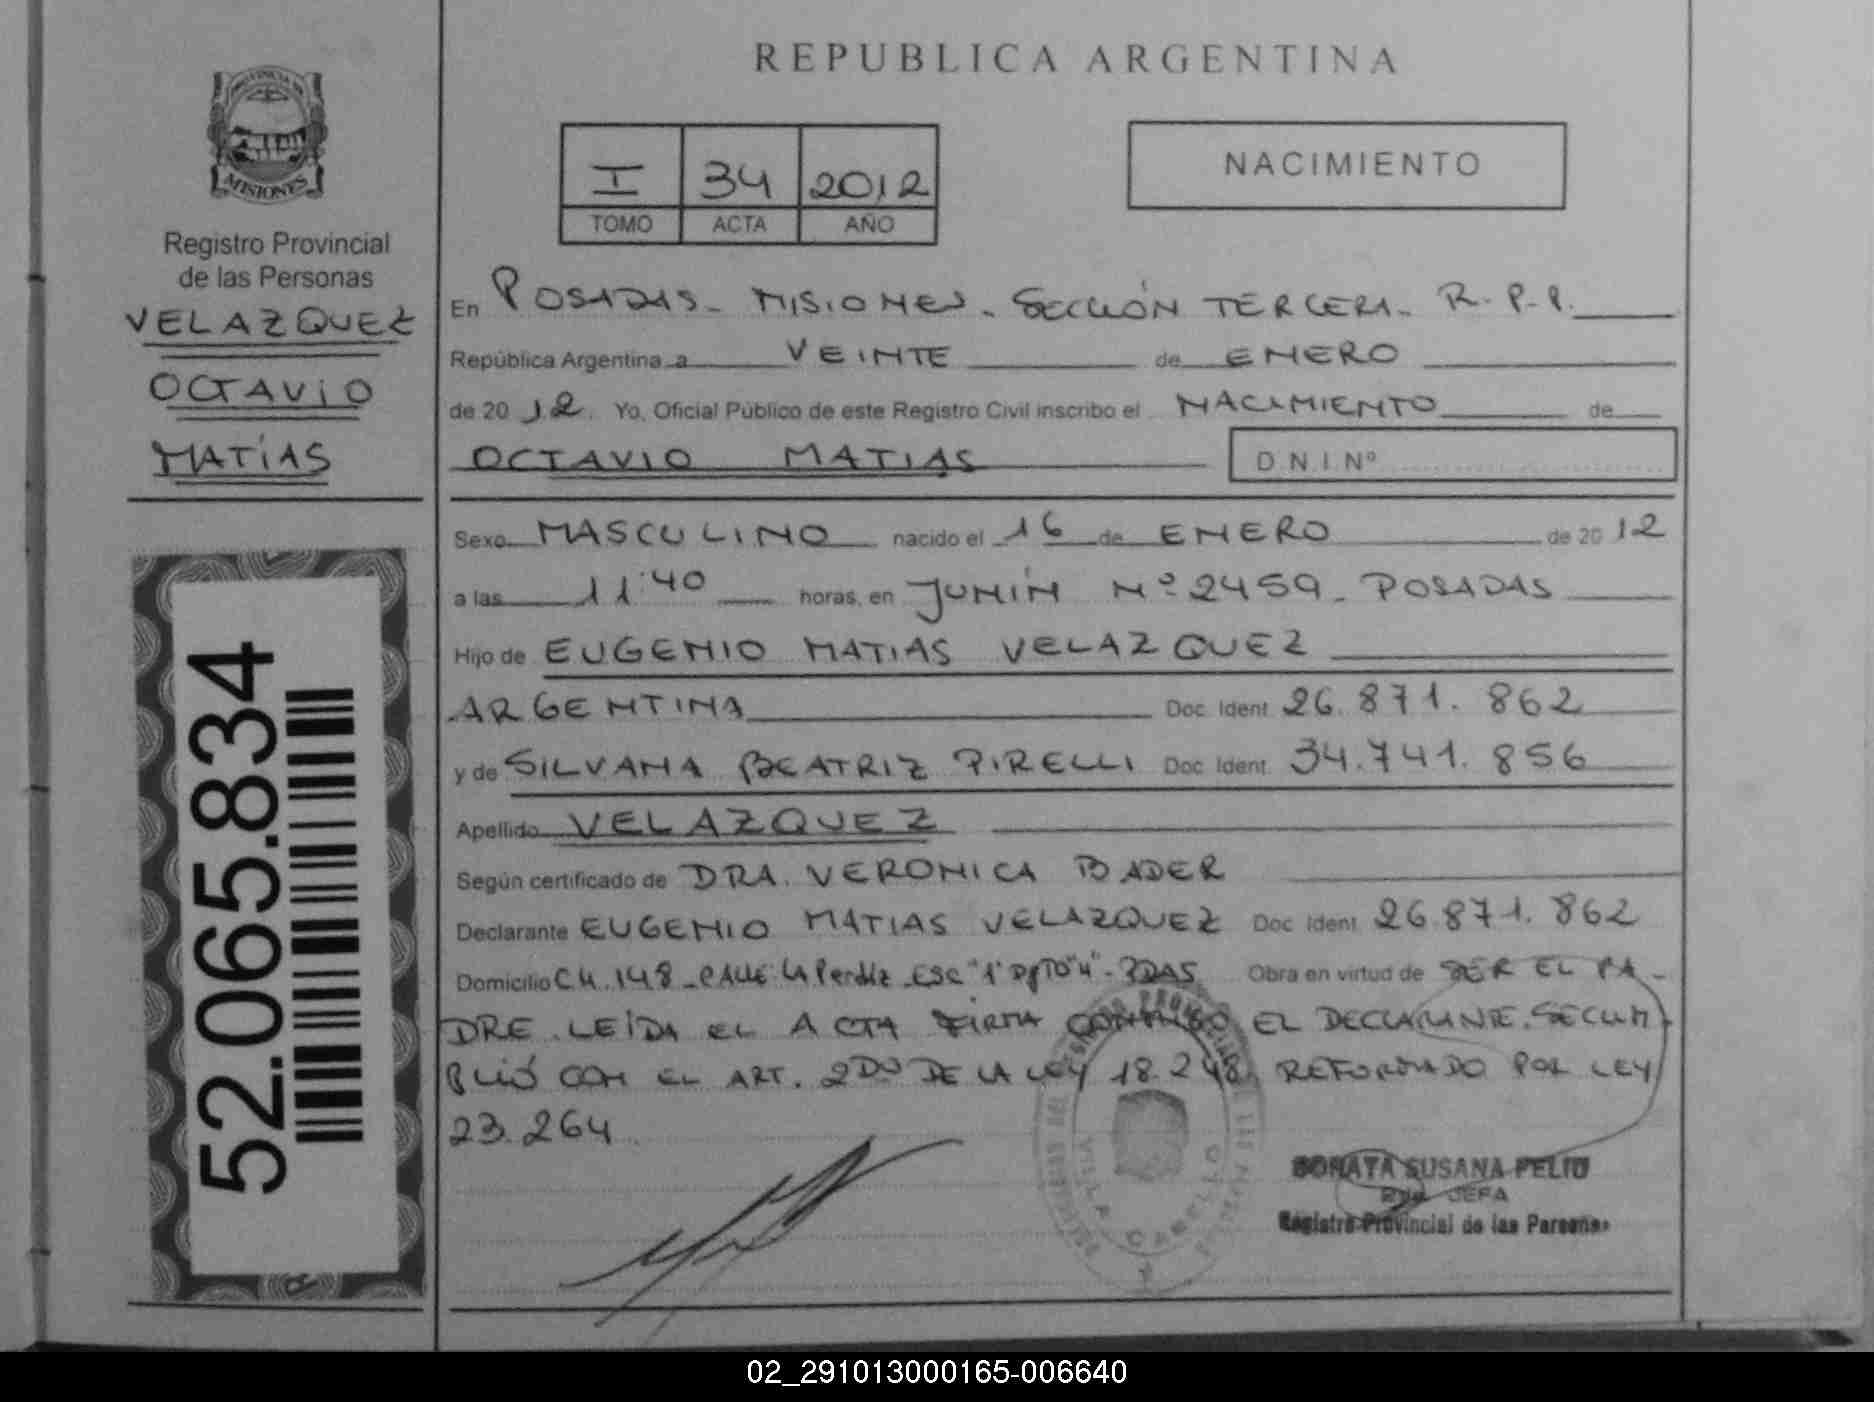 REPUBLICA ARGENTINA
PROVINCIA DE
MISIONES
Registro Provincial
de las Personas
VELAZQUEZ
OCTAVIO
MATÍAS
52.065.834
I 34 2012
TOMO ACTA AÑO
NACIMIENTO
En POSADAS - MISIONES - SECCIÓN TERCERA - R.P.P.
República Argentina a VEINTE de ENERO
de 2012. Yo, Oficial Público de este Registro Civil inscribo el NACIMIENTO de
OCTAVIO MATIAS D.N.I.Nº
Sexo MASCULINO nacido el 16 de ENERO de 2012
a las 11:40 horas, en JUNÍN Nº 2459 - POSADAS
Hijo de EUGENIO MATIAS VELAZQUEZ
ARGENTINA Doc. Ident. 26.871.862
y de SILVANA BEATRIZ PIRELLI Doc. Ident. 34.741.856
Apellido VELAZQUEZ
Según certificado de DRA. VERONICA BADER
Declarante EUGENIO MATIAS VELAZQUEZ Doc. Ident. 26.871.862
Domicilio CH. 148 - CALLE: La Perdiz - ESC "1" DpTO "4" - PDAS Obra en virtud de SER EL PA-
DRE. LEÍDA EL ACTA FIRMA CONMIGO EL DECLARANTE. SE CUM-
PLIÓ CON EL ART. 2DO DE LA LEY 18.248 REFORMADO POR LEY
23.264
VILLA CABELLO
SUSANA FELIU
JEFA
Registro Provincial de las Personas
02_291013000165-006640